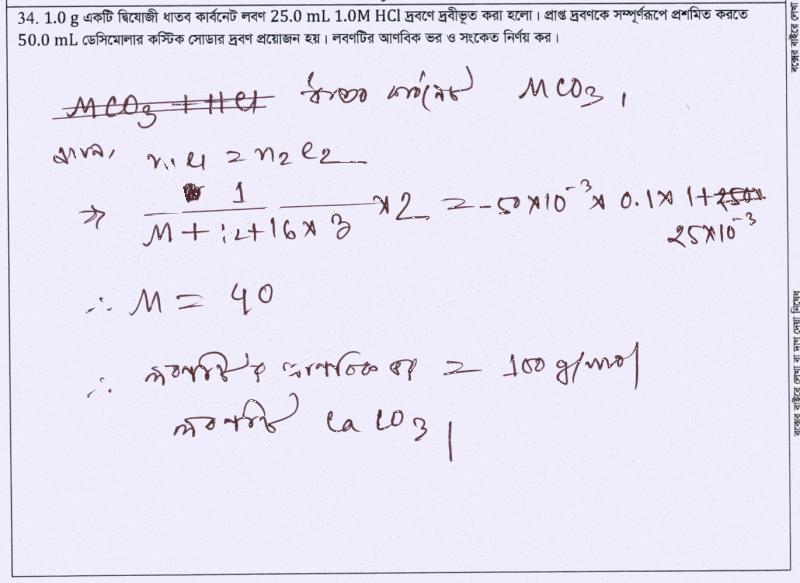 34. 1.0 g একটি দ্বিযোজী ধাতব কার্বনেট লবণ 25.0 mL 1.0M HCl দ্রবণে দ্রবীভূত করা হলো। প্রাপ্ত দ্রবণকে সম্পূর্ণরূপে প্রশমিত করতে
50.0 mL ডেসিমোলার কস্টিক সোডার দ্রবণ প্রয়োজন হয়। লবণটির আণবিক ভর ও সংকেত নির্ণয় কর।
MCO3 + HCl ধাতব কার্বনেট MCO3।
n1e1 = n2e2
⇒ 1 / M + 12 + 16 × 3 × 2 = -50×10^-3 × 0.1 × 1 +
25×10^-3
∴ M = 40
∴ লবণটির আণবিক ভর = 100 g/mol
লবণটি CaCO3।
বক্সের বাইরে লেখা
বক্সের বাইরে লেখা বা দাগ দেয়া নিষেধ